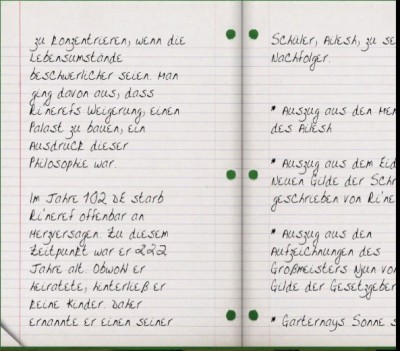 zu konzentrieren, wenn die
Lebensumstände
beschwerlicher seien. Man
ging davon aus, dass
Ri'nerefs Weigerung, einen
Palast zu bauen, ein
Ausdruck dieser
Philosophie war.
Im Jahre 102 DE starb
Ri'neref offenbar an
Herzversagen. Zu diesem
Zeitpunkt war er 222
Jahre alt. Obwohl er
heiratete, hinterließ er
keine Kinder. Daher
ernannte er einen seiner
Schüler, Ailesh, zu se
Nachfolger.
* Auszug aus den Mem
des Ailesh
* Auszug aus dem Eid
Neuen Gilde der Schr
geschrieben von Ri'ne
* Auszug aus den
Aufzeichnungen des
Großmeisters Njun vo
Gilde der Gesetzgeber
* Garternays Sonne s